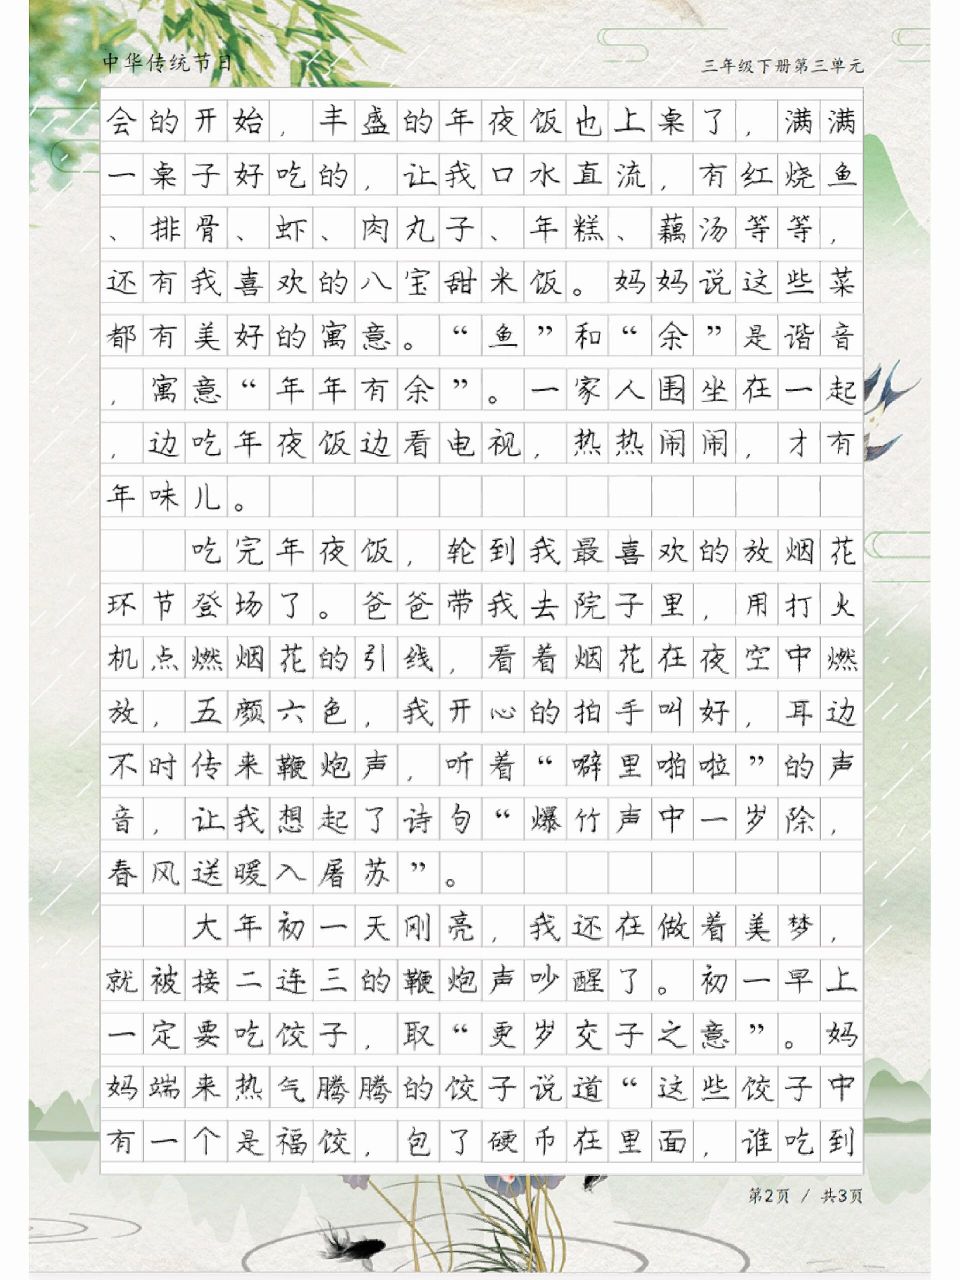 中华传统节日
三年级下册第三单元
会的开始，丰盛的年夜饭也上桌了，满满
一桌子好吃的，让我口水直流，有红烧鱼
、排骨、虾、肉丸子、年糕、藕汤等等，
还有我喜欢的八宝甜米饭。妈妈说这些菜
都有美好的寓意。“鱼”和“余”是谐音
，寓意“年年有余”。一家人围坐在一起
，边吃年夜饭边看电视，热热闹闹，才有
年味儿。
吃完年夜饭，轮到我最喜欢的放烟花
环节登场了。爸爸带我去院子里，用打火
机点燃烟花的引线，看着烟花在夜空中燃
放，五颜六色，我开心的拍手叫好，耳边
不时传来鞭炮声，听着“噼里啪啦”的声
音，让我想起了诗句“爆竹声中一岁除，
春风送暖入屠苏”。
大年初一天刚亮，我还在做着美梦，
就被接二连三的鞭炮声吵醒了。初一早上
一定要吃饺子，取“更岁交子之意”。妈
妈端来热气腾腾的饺子说道“这些饺子中
有一个是福饺，包了硬币在里面，谁吃到
第2页 / 共3页